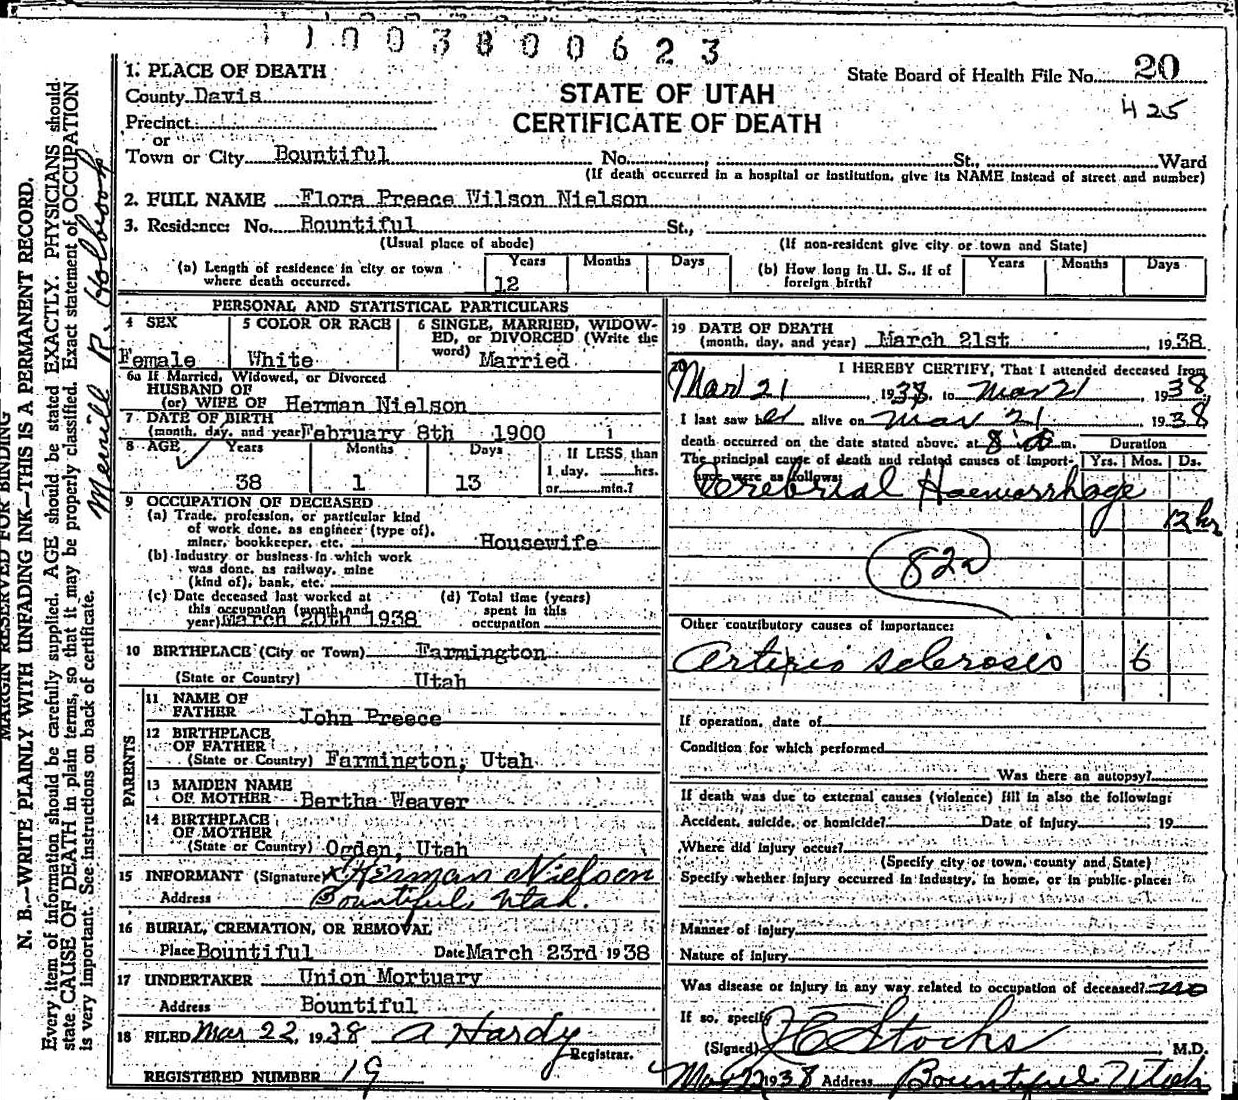 1003800623
1. PLACE OF DEATH
County Davis
Precinct
or
Town or City Bountiful No. St., Ward
(If death occurred in a hospital or institution, give its NAME instead of street and number)
STATE OF UTAH
CERTIFICATE OF DEATH
State Board of Health File No. 20
425
2. FULL NAME Flora Preece Wilson Nielson
3. Residence: No. Bountiful St.,
(Usual place of abode) (If non-resident give city or town and State)
(a) Length of residence in city or town where death occurred. Years 12 Months Days
(b) How long in U. S., if of foreign birth? Years Months Days
PERSONAL AND STATISTICAL PARTICULARS
4 SEX Female
5 COLOR OR RACE White
6 SINGLE, MARRIED, WIDOWED, or DIVORCED (Write the word) Married
6a If Married, Widowed, or Divorced
HUSBAND OF
(or) WIFE OF Herman Nielson
7 DATE OF BIRTH
(month, day, and year) February 8th 1900
8 AGE Years 38 Months 1 Days 13
If LESS than
1 day, hrs.
or min.?
9 OCCUPATION OF DECEASED
(a) Trade, profession, or particular kind
of work done, as engineer (type of),
miner, bookkeeper, etc. Housewife
(b) Industry or business in which work
was done, as railway, mine
(kind of), bank, etc.
(c) Date deceased last worked at
this occupation (month and
year) March 20th 1938
(d) Total time (years)
spent in this
occupation
10 BIRTHPLACE (City or Town) Farmington
(State or Country) Utah
PARENTS
11 NAME OF
FATHER John Preece
12 BIRTHPLACE
OF FATHER
(State or Country) Farmington, Utah
13 MAIDEN NAME
OF MOTHER Bertha Weaver
14 BIRTHPLACE
OF MOTHER
(State or Country) Ogden, Utah
15 INFORMANT (Signature) X Herman Nielson
Address Bountiful, Utah.
16 BURIAL, CREMATION, OR REMOVAL
Place Bountiful Date March 23rd 1938
17 UNDERTAKER Union Mortuary
Address Bountiful
18 FILED Mar 22, 1938 A Hardy
Registrar.
REGISTERED NUMBER 19
19 DATE OF DEATH
(month, day, and year) March 21st, 1938
20 I HEREBY CERTIFY, That I attended deceased from
Mar 21 1938, to Mar 21, 1938,
I last saw her alive on Mar 21 1938
death occurred on the date stated above, at m. Duration
The principal cause of death and related causes of import- Yrs. Mos. Ds.
ance were as follows:
Cerebrial Haemorrhage
12 hr
82a
Other contributory causes of importance:
Arterio sclerosis 6
If operation, date of
Condition for which performed
Was there an autopsy?
If death was due to external causes (violence) fill in also the following:
Accident, suicide, or homicide? Date of injury 19
Where did injury occur?
(Specify city or town, county and State)
Specify whether injury occurred in industry, in home, or in public place:
Manner of injury
Nature of injury
Was disease or injury in any way related to occupation of deceased? no
If so, specify
(Signed) Stocks M.D.
Mar 22 1938 Address Bountiful Utah
MARGIN RESERVED FOR BINDING
N. B.—WRITE PLAINLY WITH UNFADING INK—THIS IS A PERMANENT RECORD.
Every item of information should be carefully supplied. AGE should be stated EXACTLY. PHYSICIANS should
state CAUSE OF DEATH in plain terms, so that it may be properly classified. Exact statement of OCCUPATION
is very important. See instructions on back of certificate.
Merrill R. Holbrook